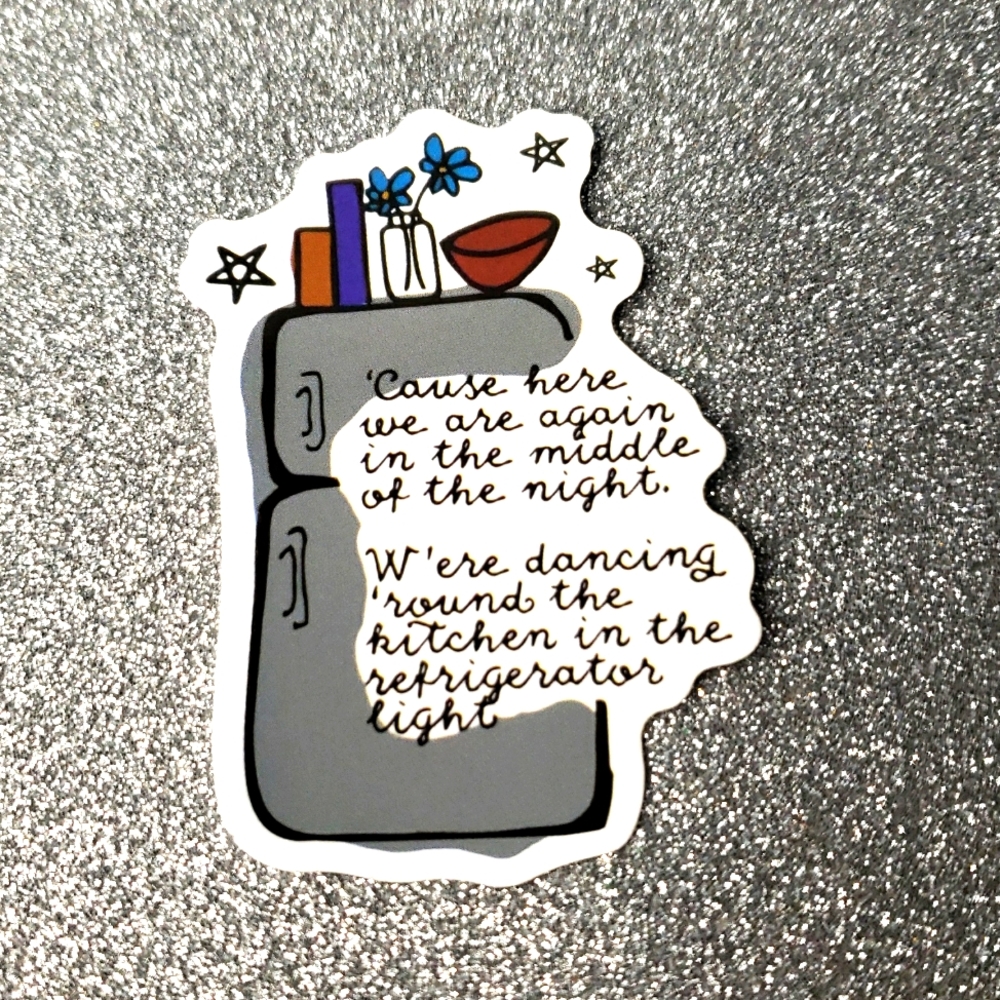 'Cause here
we are again
in the middle
of the night.
W'ere dancing
'round the
kitchen in the
refrigerator
light